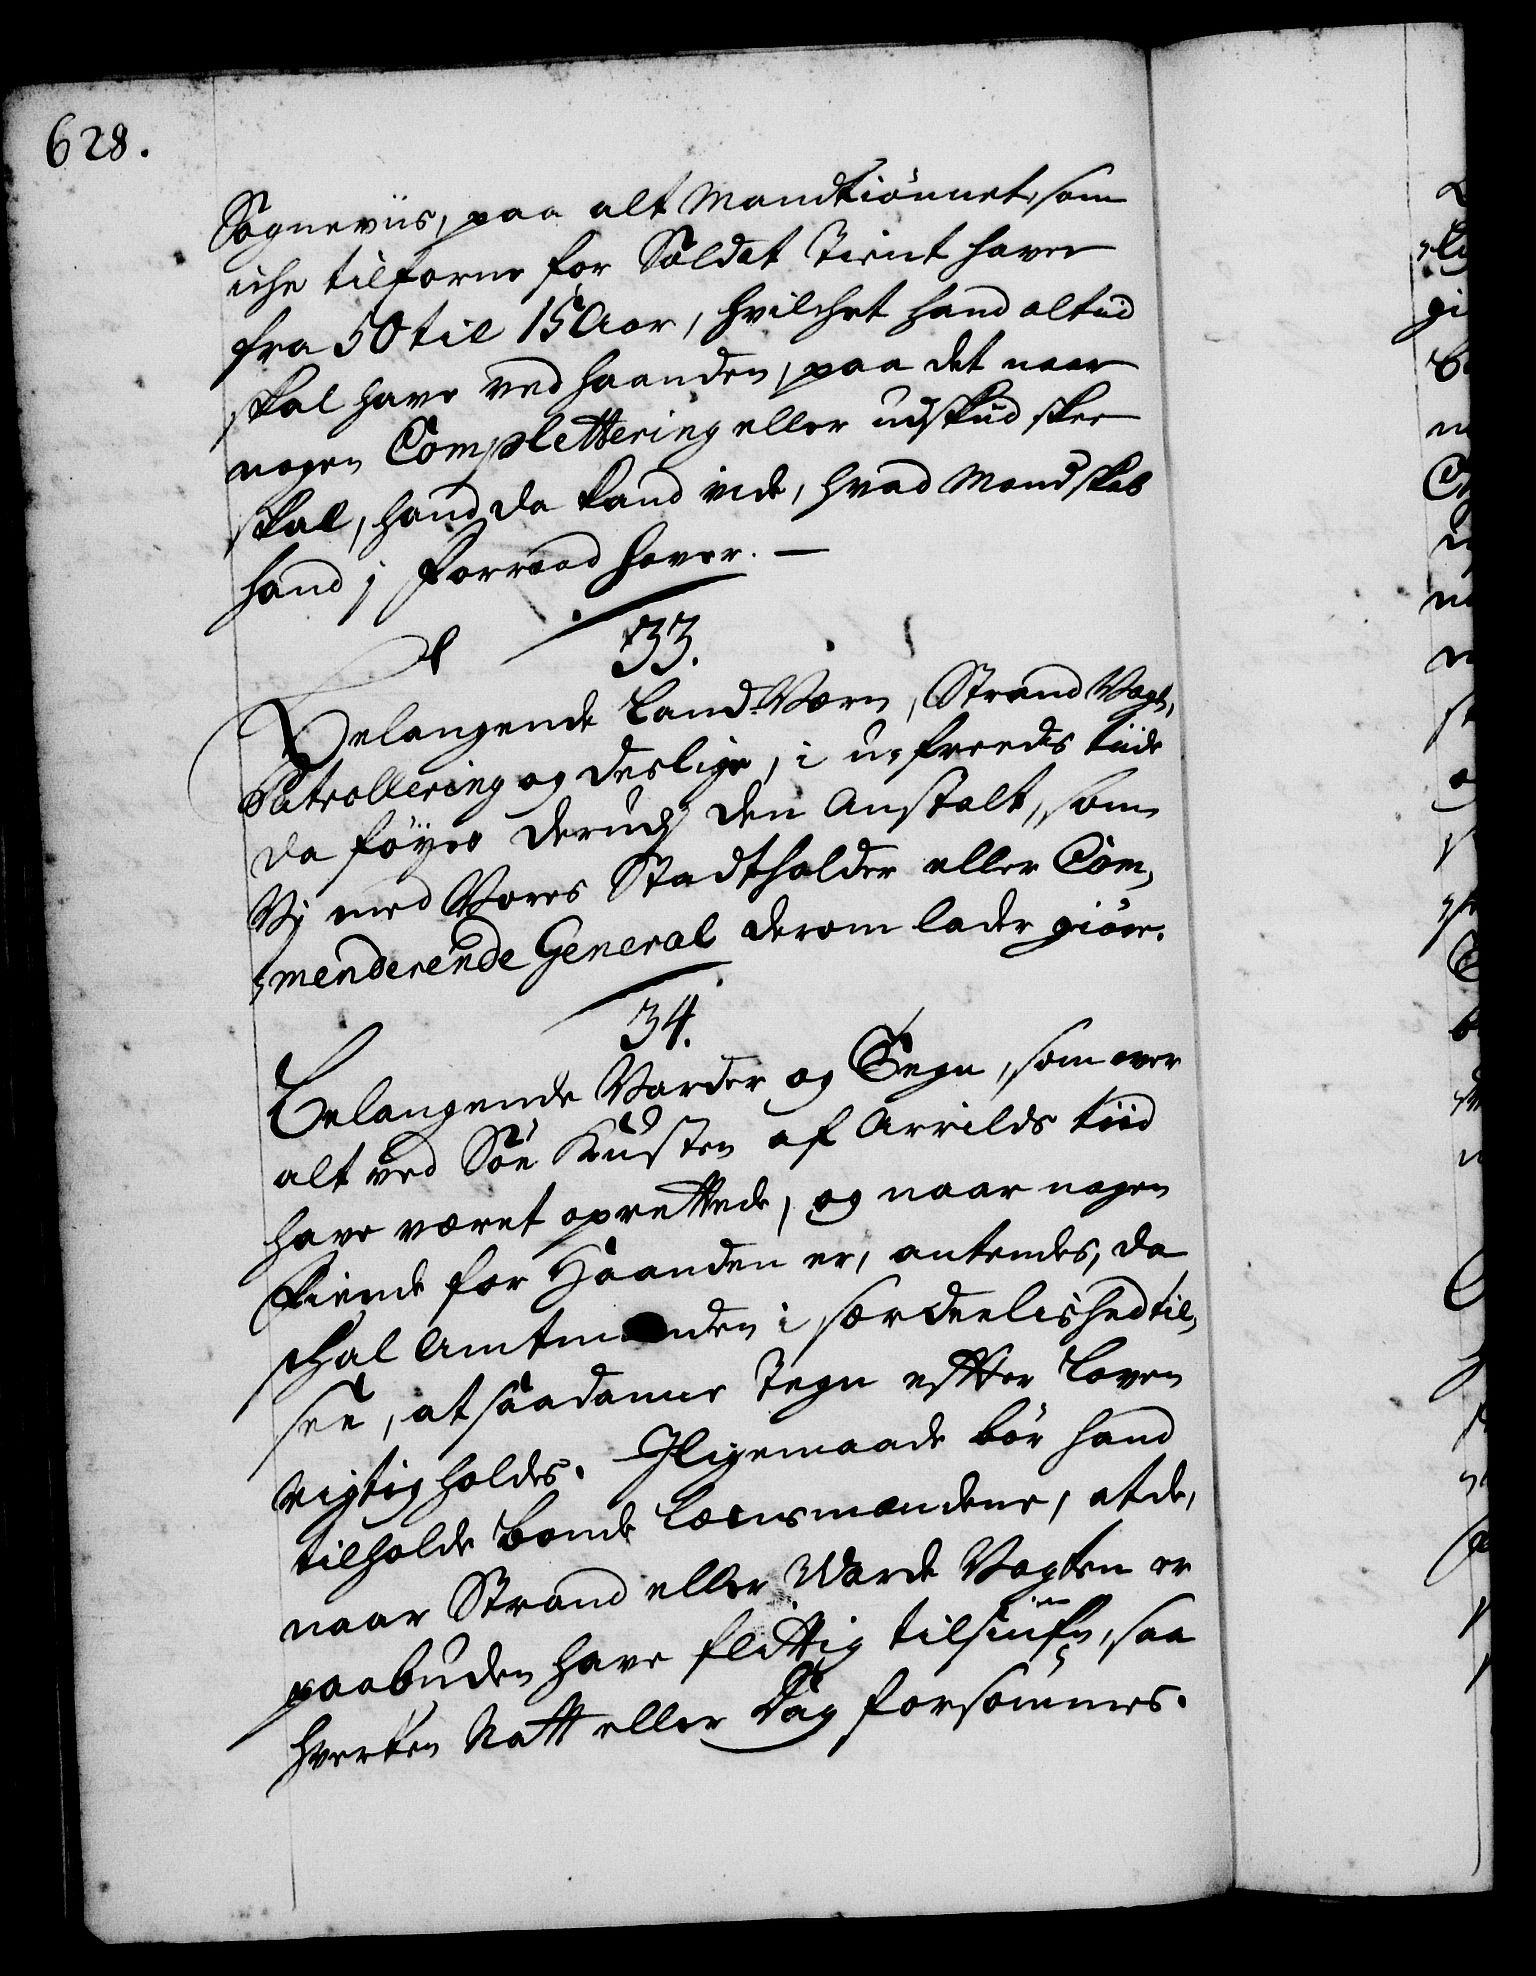 628.
Sogneviis, paa alt Mandkiönnet, som
iche tilforne for Soldat tient haver
fra 50 til 15 Aar, hvilchet hand altiid
skal have ved haanden, paa det naar
nogen Complettering eller udskud skee
skal, hand da kand vide, hvad Mandskab
hand j forraad haver. —
33.
Belangende Land-Værn, Strand Vagt,
Patrollering og deslige, i u-freeds tiide
da föyes derudj den Anstalt, som
Vj med Vores Stadtholder eller Com-
menderende General derom lader giöre.
34.
Belangende Varder og Tegn, som over
alt ved Söe Kusten af Arrilds tiid
have været oprettede, og naar nogen
Fiende for Haanden er, antendes, da
schal Amtmanden i særdeelished til-
see, at saadanne Tegn effter Loven
rigtig holdes. Jligemaade bör hand
tilholde bonde Lænsmændene, at de,
naar Strand eller Warde Vagten er
paabuden have flittig tilsiufn, saa
hverken Natt eller Dag forsömmes.